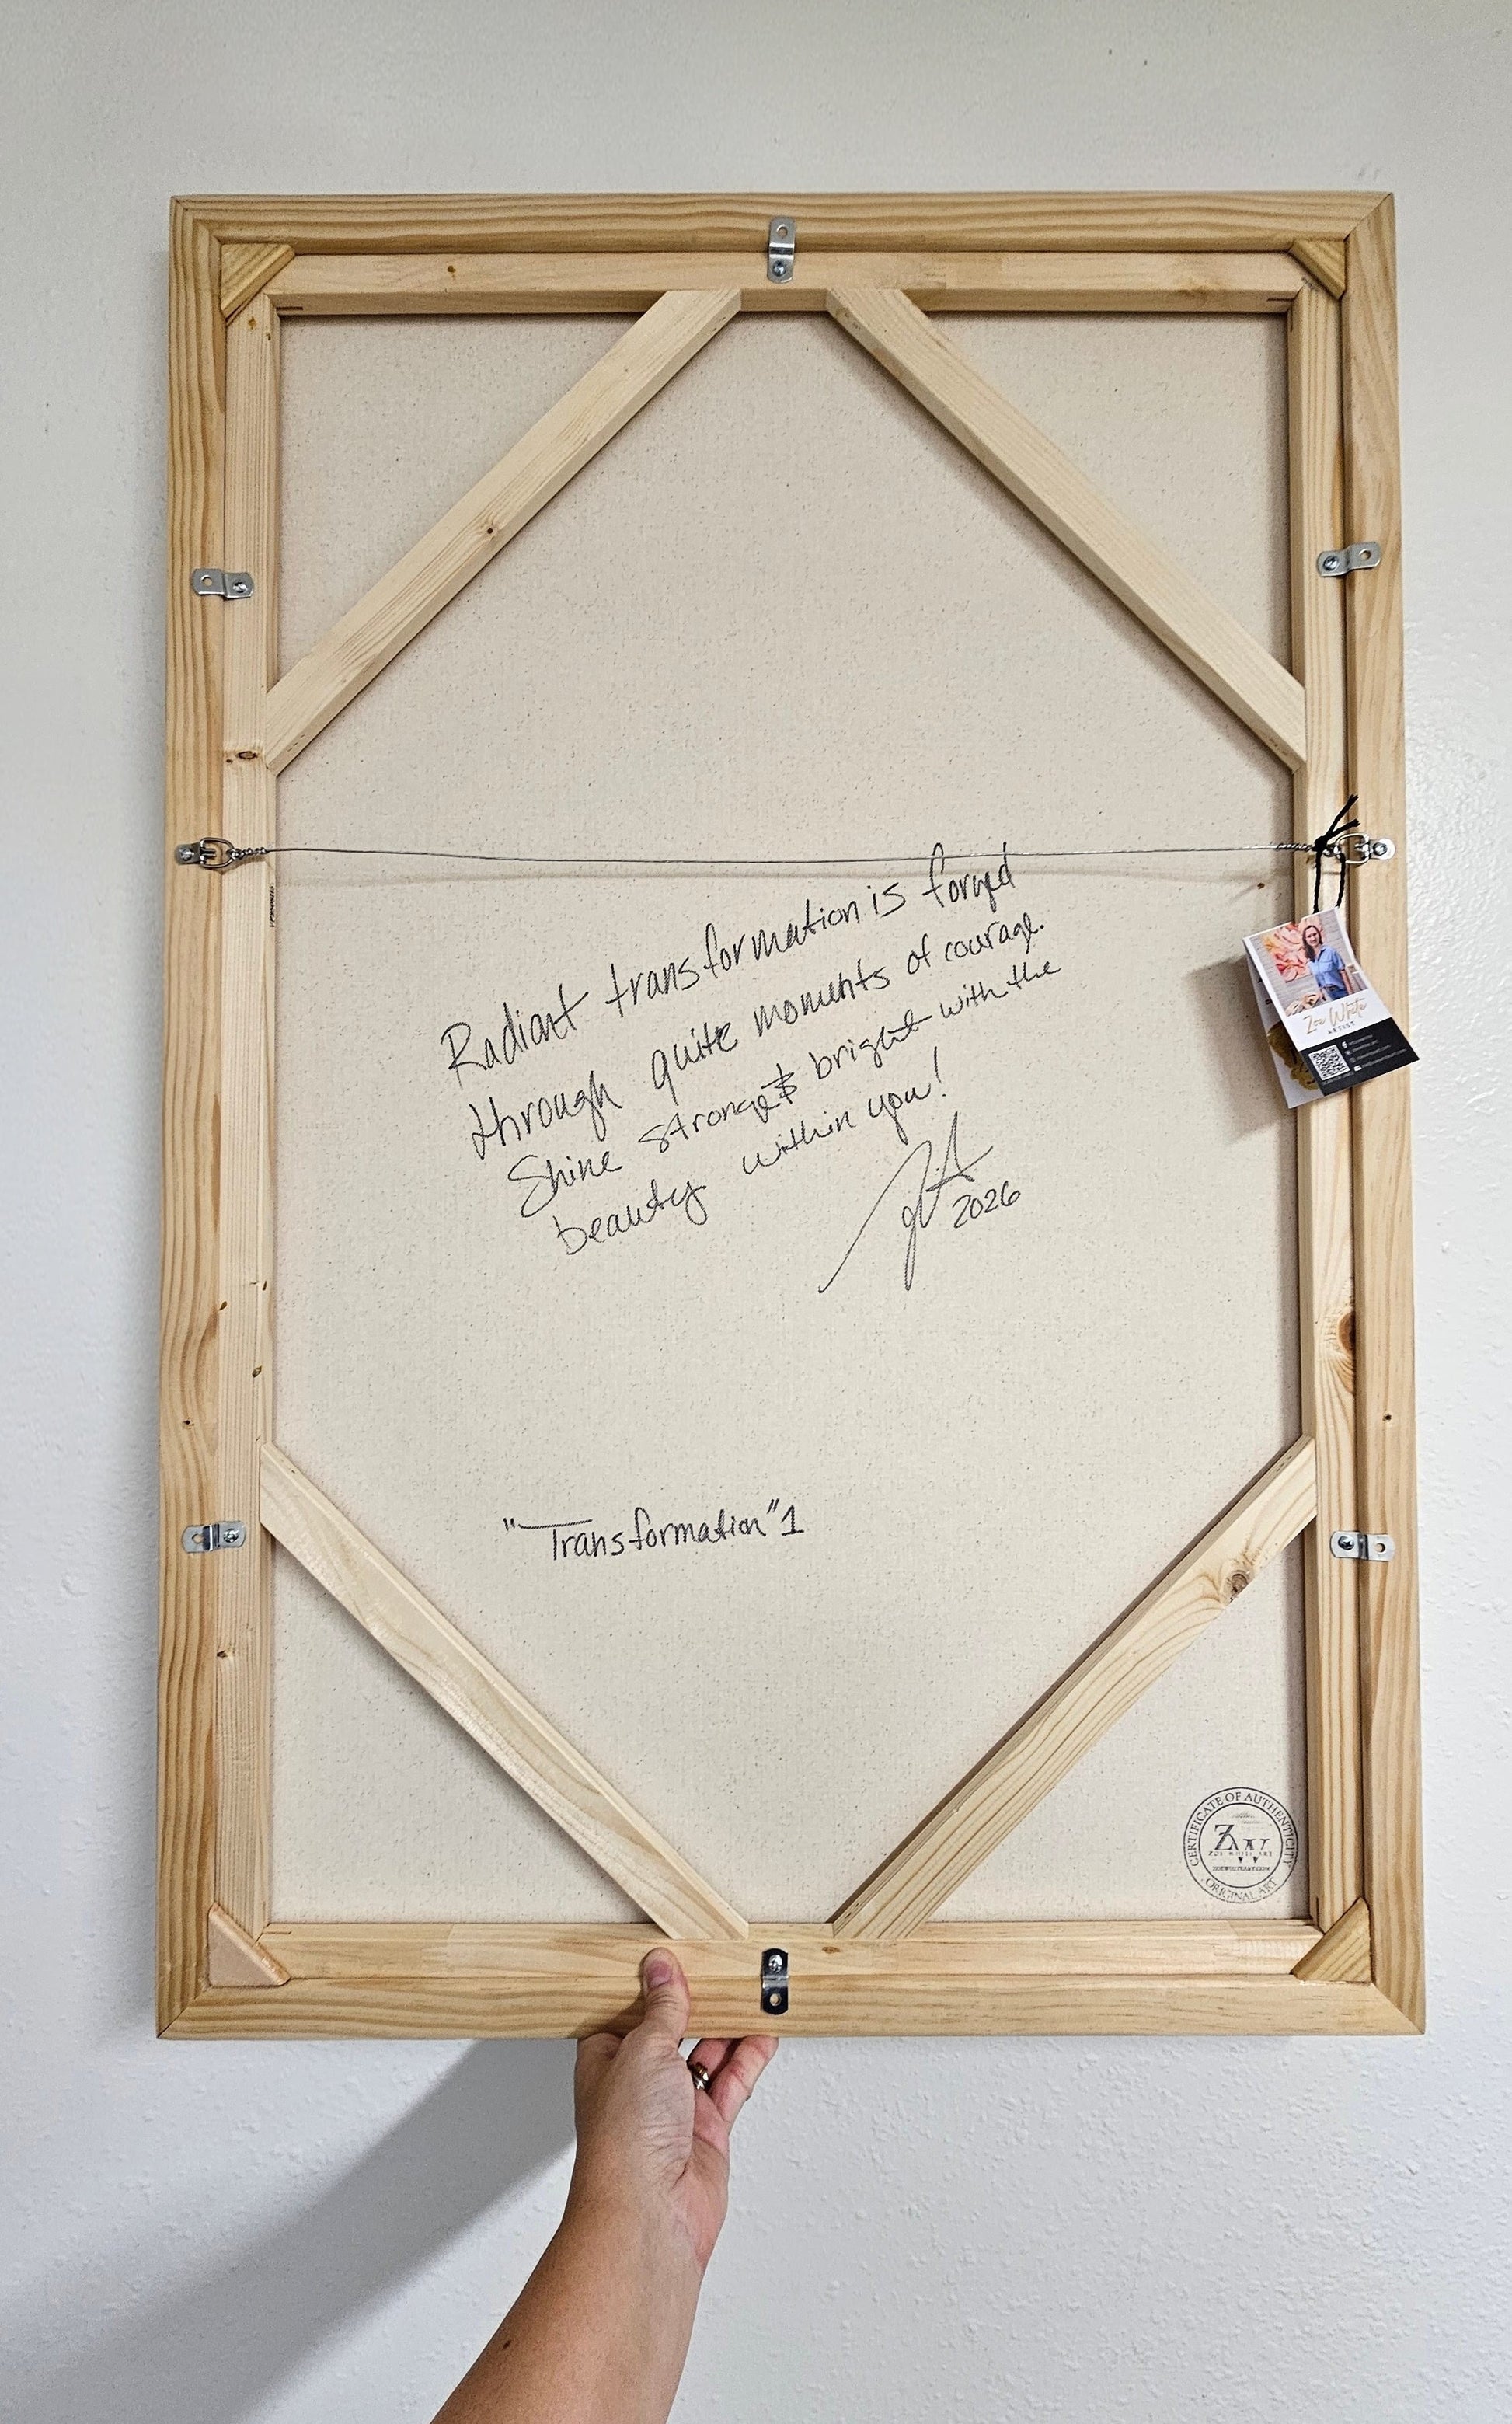 Radiant transformation is forged
through quite moments of courage.
Shine strong & bright with the
beauty within you!
2026
Zoe White
ARTIST
"Transformation" 1
CERTIFICATE OF AUTHENTICITY
ZW
ZOE WHITE ART
ZOEWHITEART.COM
ORIGINAL ART